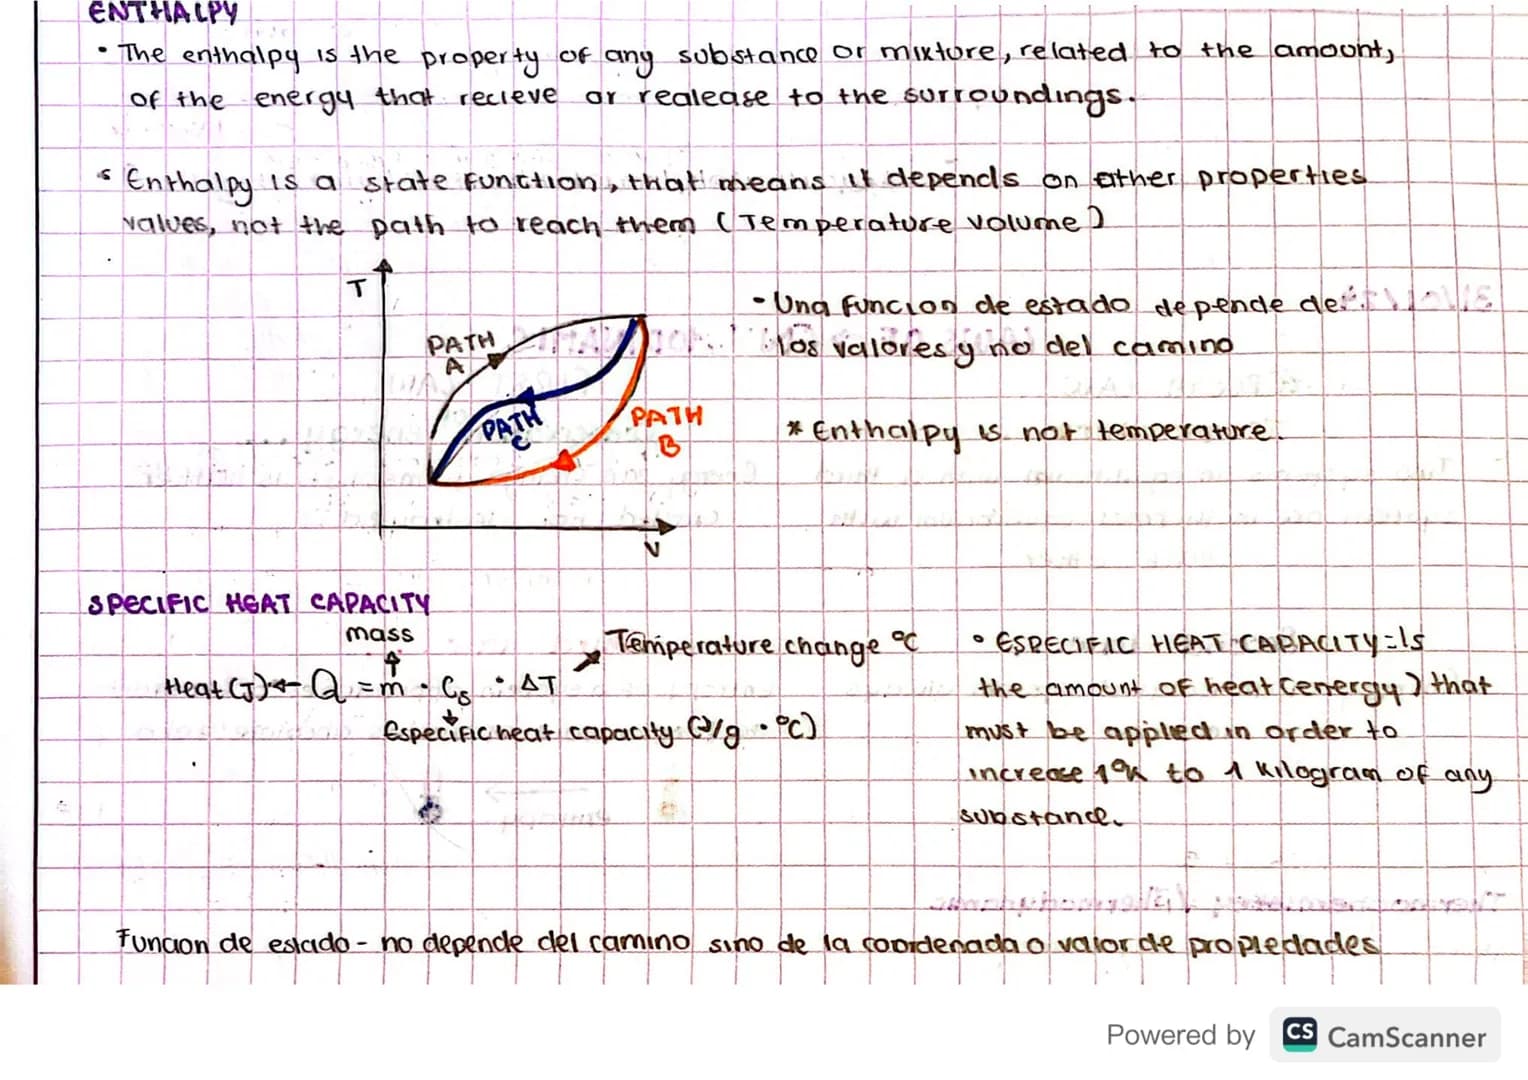 ENTHALPY
• The enthalpy is the property of any substance or mixture, related to the amount,
of the energy that recieve or realease to the surroundings.
Enthalpy is a state function, that means it depends on other properties
values, not the path to reach them (Temperature volume)
T
- Una funcion de estado depende de
los valores y no del camino
PATH
A
PATH
C
PATH
B
* Enthalpy is not temperature.
V
SPECIFIC HEAT CAPACITY
mass
Temperature change °C
Heat (J) ← Q = m · Cs · ΔT
Especific heat capacity (J/g · °C)
• ESPECIFIC HEAT CAPACITY = Is
the amount of heat (energy) that
must be applied in order to
increase 1°K to 1 kilogram of any
substance.
Funcion de estado - no depende del camino sino de la coordenada o valor de propiedades
Powered by CS CamScanner